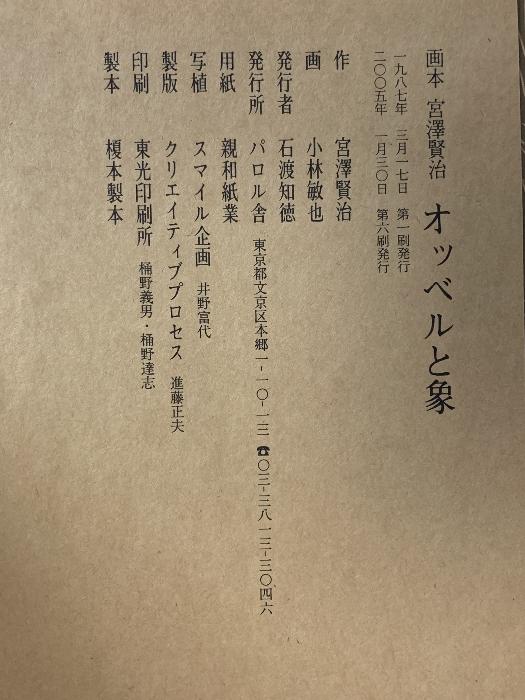 画本 宮澤賢治 オッベルと象
一九八七年 三月一七日 第一刷発行
二〇〇五年 一月三〇日 第六刷発行
作 宮澤賢治
画 小林敏也
発行者 石渡知徳
発行所 パロル舎 東京都文京区本郷一-一〇-一三 ☎〇三-三八一三-三〇四六
用紙 親和紙業
写植 スマイル企画 井野富代
製版 クリエイティブプロセス 進藤正夫
印刷 東光印刷所 桶野義男・桶野達志
製本 榎本製本